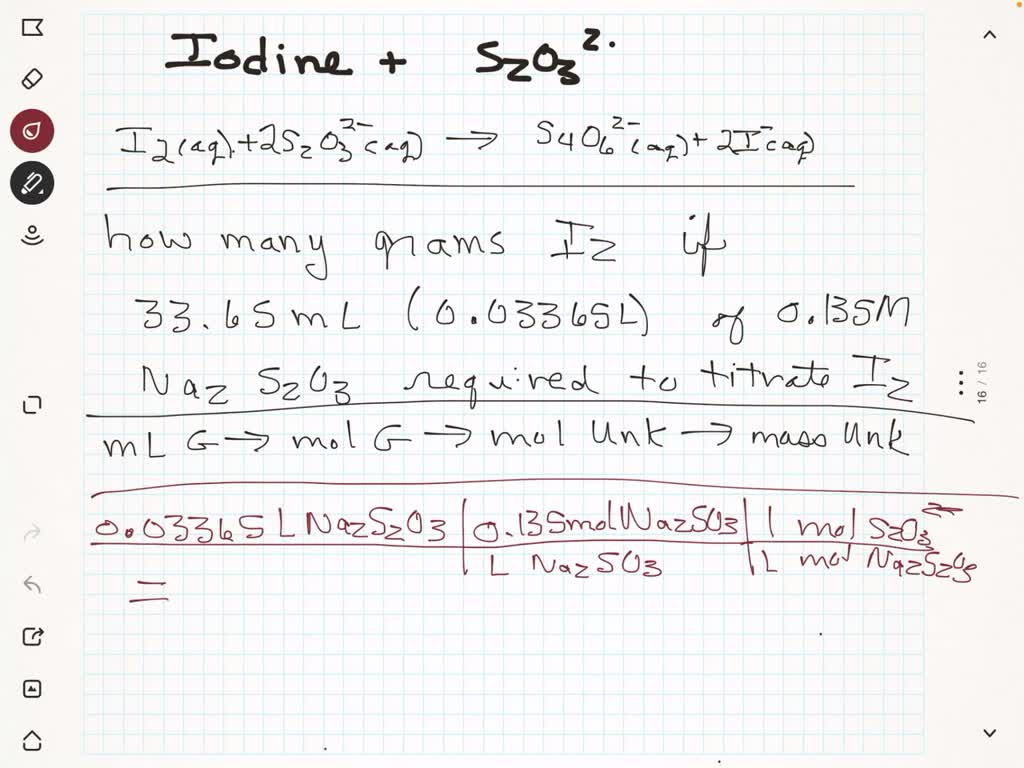 Iodine + S2O3 2-
I2(aq) + 2S2O3 2-(aq) → S4O6 2-(aq) + 2I-(aq)
how many grams I2 if
33.65 mL (0.03365L) of 0.135M
Na2 S2O3 required to titrate I2
mL G → mol G → mol Unk → mass Unk
0.03365 L Na2S2O3 | 0.135 mol Na2SO3 | 1 mol S2O3 2-
L Na2SO3 | 1 mol Na2S2O3
=
16 / 16